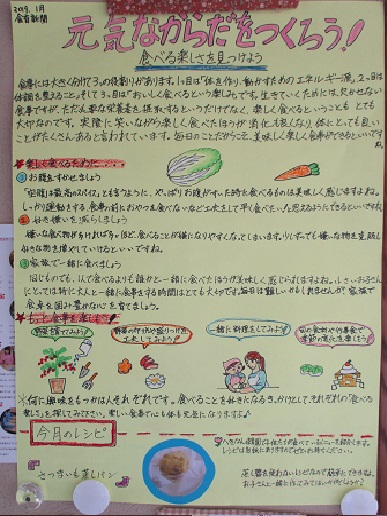 2019. 1月
食育新聞
元気なからだをつくろう!
食べる楽しさを見つけよう
食事には大きく分けて3つの役割があります。1つ目は「体を作り、動かすためのエネルギー源」、2つ目は
体調を整えること、そして3つ目は「おいしく食べるという楽しみ」です。生きていくためには、欠かせない
食事ですが、ただ必要な栄養素を摂取するというだけでなく、楽しく食べるということもとても
大切なのです。実際に笑いながら楽しく食べたほうが消化も良くなり体にとっても良い
ことがたくさんあると言われています。毎日のことだからこそ、美味しく楽しく食事ができるといいですね
★楽しく食べるために……
①お腹をすかせましょう
「空腹は最高のスパイス」とも言うように、やっぱりお腹がすいた時に食べるものは美味しく感じますよね。
しっかり運動する、食事の前におやつを食べないなど工夫をして早く食べたい!と思えるようにできるといいですね
②好き嫌いを減らしましょう
嫌いな食べ物が多ければ多いほど、食べることが嫌になりやすくなってしまいます。少しずつでも嫌いな物を克服し
好きな物を増やしていけるといいですね。
③家族で食べましょう
同じものでも、1人で食べるよりも誰かと一緒に食べたほうが美味しく感じられますよね。小さいお子さん
にとっては特に大人と一緒に食事をする時間はとても大切です。毎日は難しいかもしれませんが、家族で
食卓を囲み豊かな心を育てましょう。
★もっと食事を楽しもう!
野菜を育ててみよう!
一緒に料理をしてみよう!
旬の食材や行事食で
季節の変化を楽しもう
※何に興味をもつかは人それぞれです。食べることを好きになるきっかけとして、それぞれの「食べる
楽しさ」を探してみて下さい。楽しい食事で心も体も元気になりますよ♪
今月のレシピ
さつまいも蒸しパン